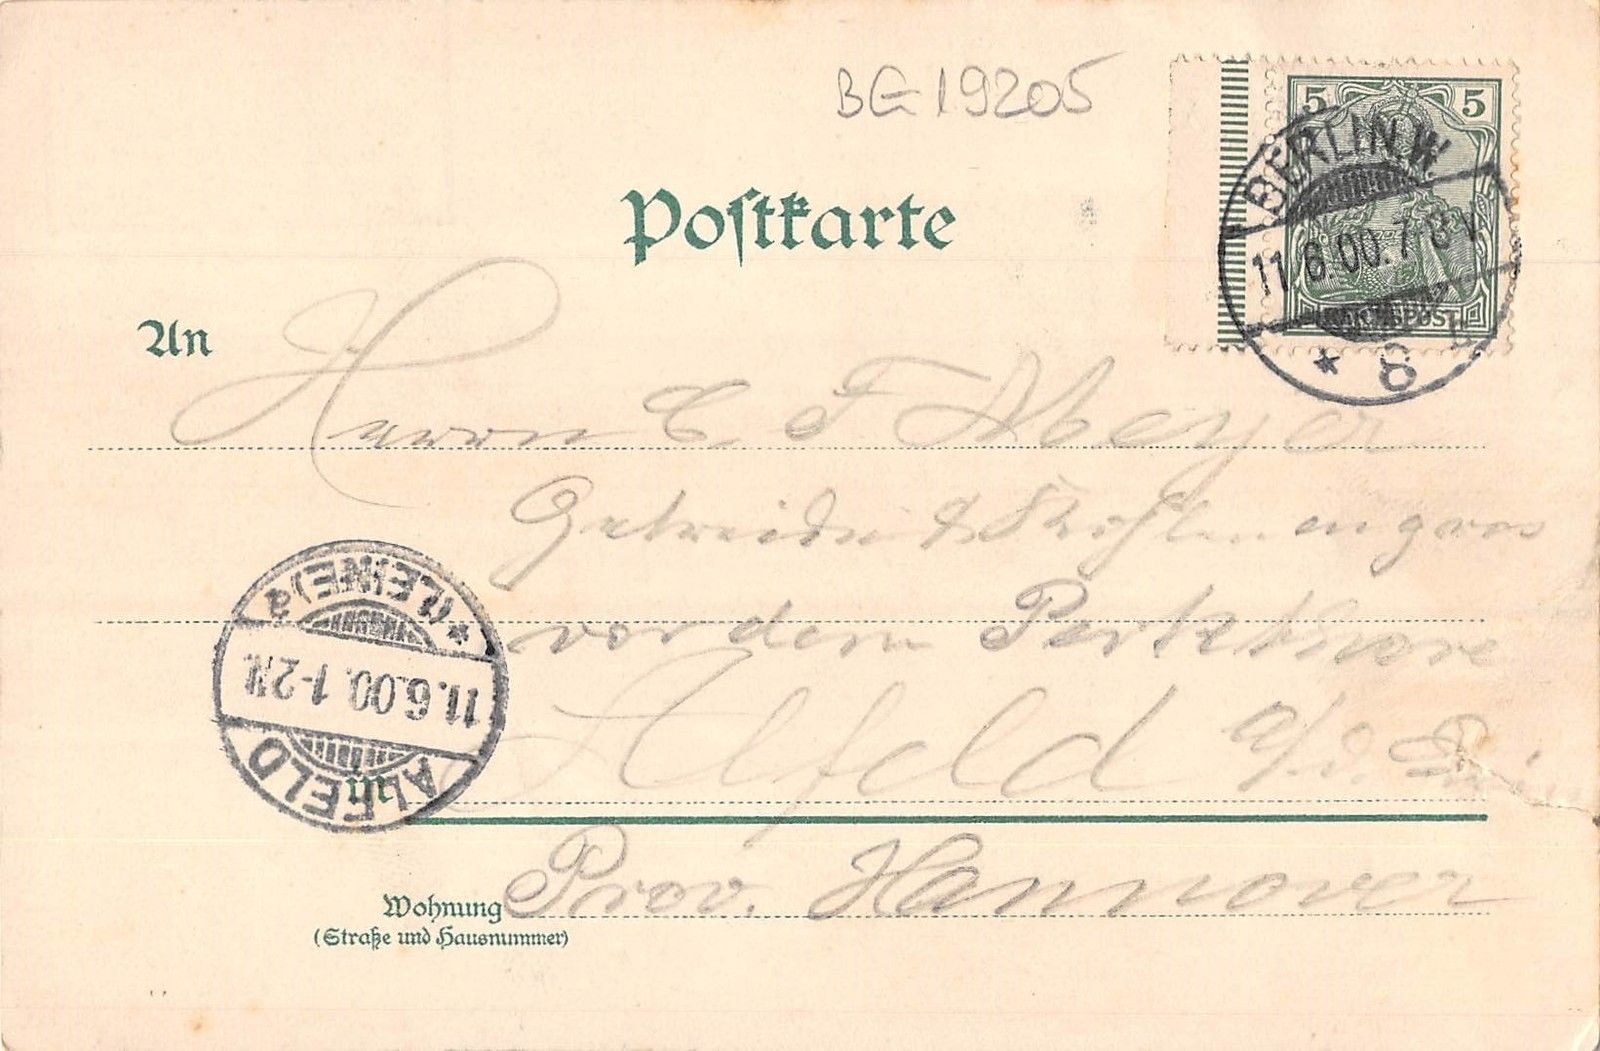 BG 19205
5 5
REICHSPOST
BERLIN.W.
11.6.00.7-8V.
* 8
Postkarte
An
Herrn C. F. Meyer
Getreide & Kohlen en gros
vor dem Perkthore
Alfeld a/d.
in
Prov. Hannover
Wohnung
(Straße und Hausnummer)
ALFELD
11.6.00.1-2N.
* (LEINE) a